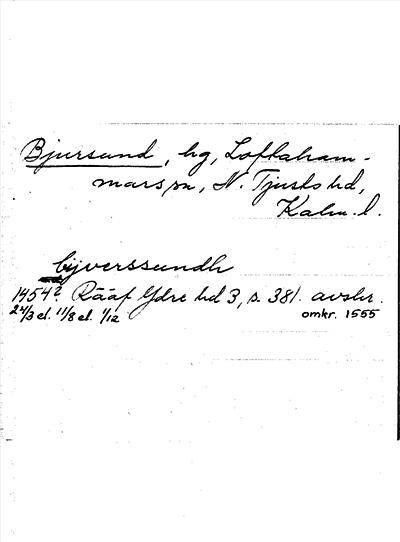 Bjursund, hg, Loftaham-
mars sn, N. Tjusts hd,
Kalm. l.
bijverssundh
1454? Rääf Ydre hd 3, s. 381. avskr.
24/3 el. 11/8 el. 1/12 omkr. 1555